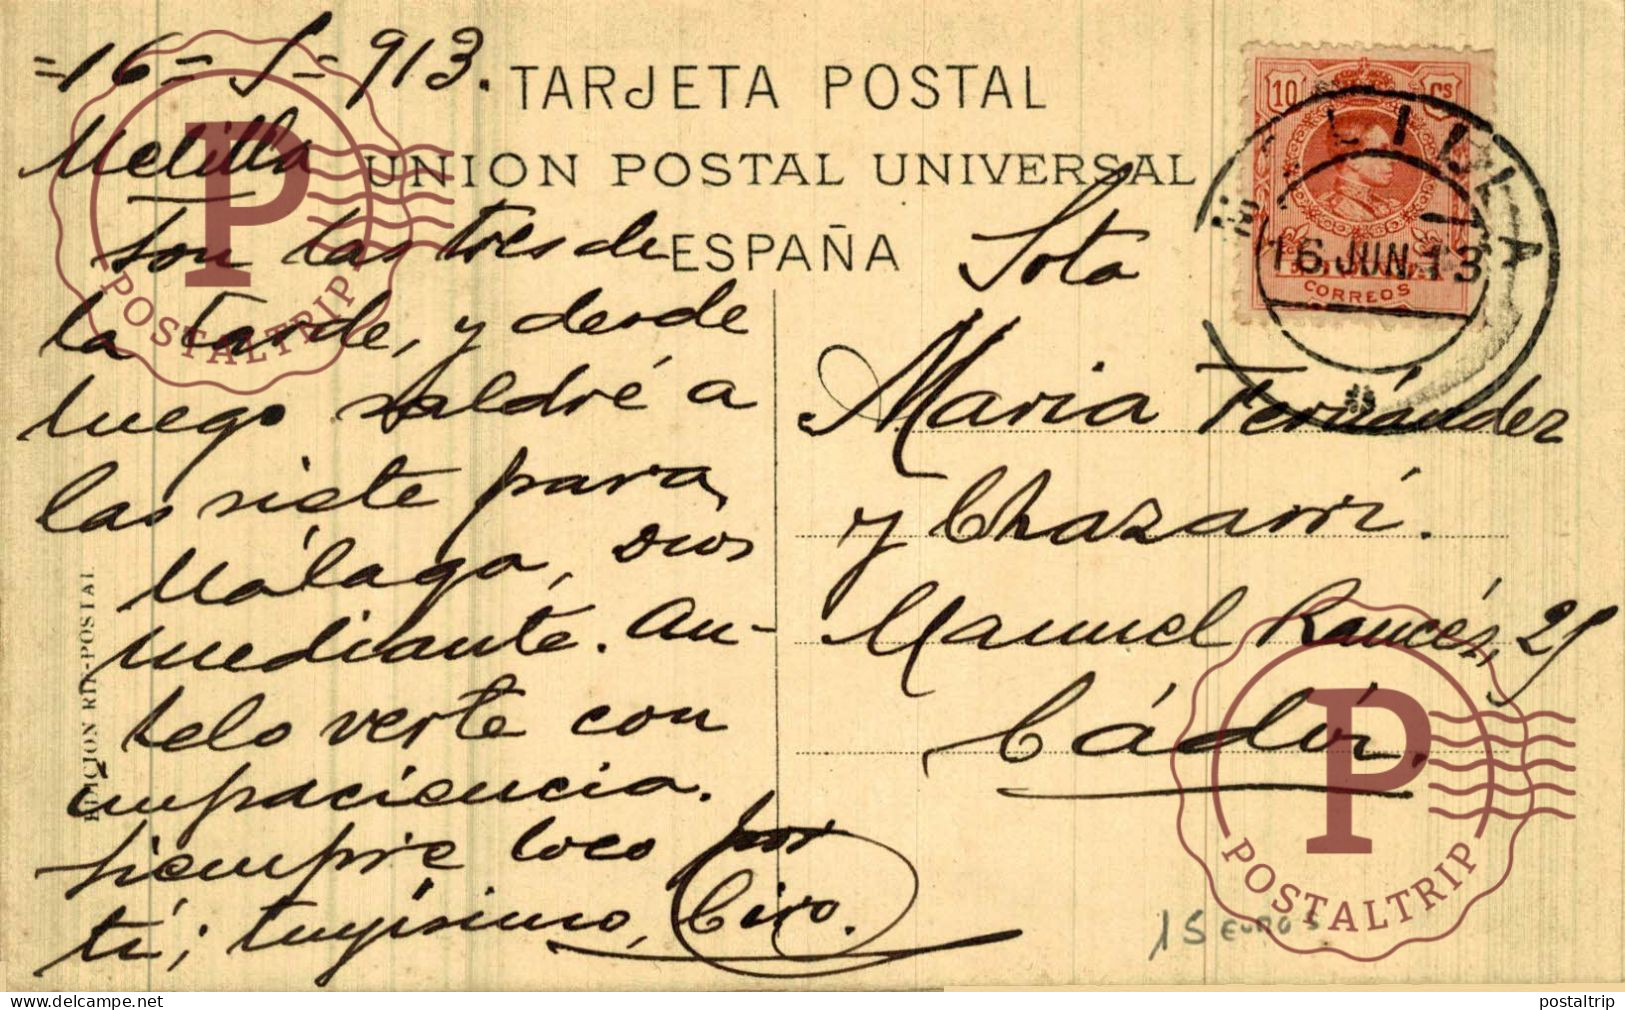 =16= J= 913.
Melilla
Son las tres de
la tarde, y desde
luego saldré a
las siete para
Málaga, Dios
mediante. An-
helo verte con
impaciencia.
Siempre loco por
tí; tuyísimo, Ciro.
TARJETA POSTAL
UNION POSTAL UNIVERSAL
ESPAÑA
Srta
Maria Fernández
y Chazarri.
Manuel Rancés, 25
Cádiz.
10 Cs
CORREOS
MELILLA
16 JUN.13
EDICION RIX-POSTAL
15 EUROS
P
POSTALTRIP
P
POSTALTRIP
www.delcampe.net
postaltrip